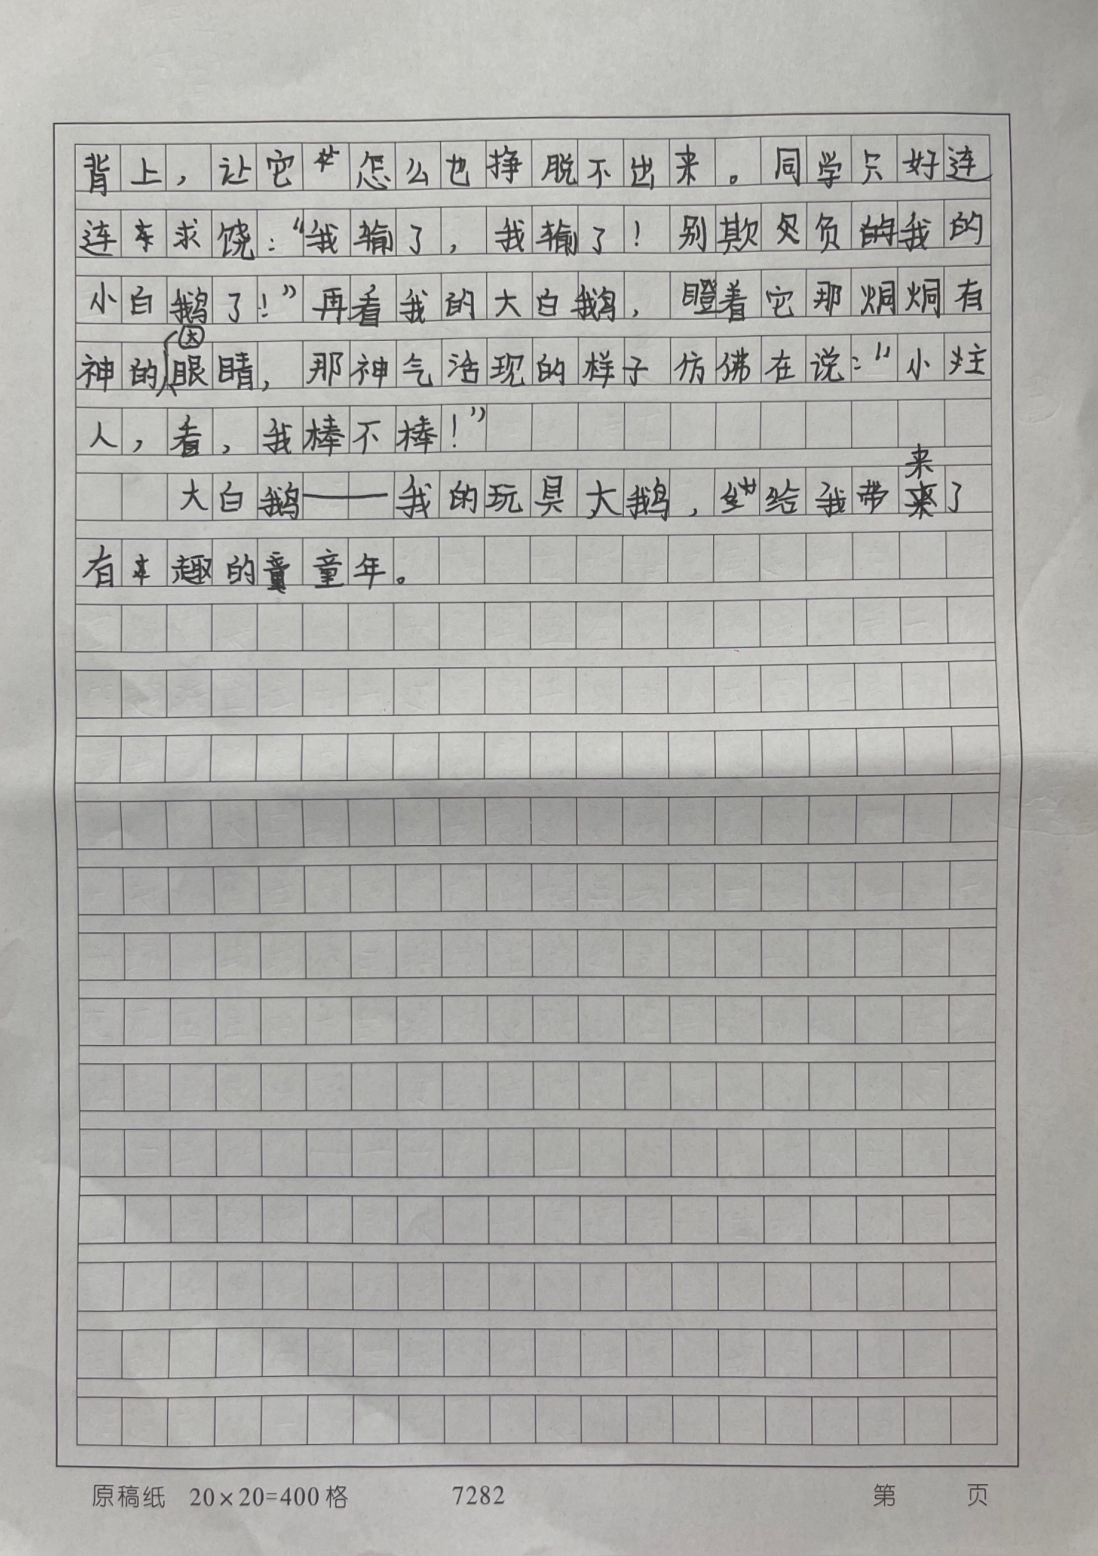 背上，让它怎么也挣脱不出来。同学只好连
连求饶：“我输了，我输了！别欺负我的
小白鹅了！”再看我的大白鹅，瞪着它那炯炯有
神的眼睛，那神气活现的样子仿佛在说：“小主
人，看，我棒不棒！”
大白鹅——我的玩具大鹅，给我带来了
有趣的童年。
原稿纸 20×20=400格 7282 第 页